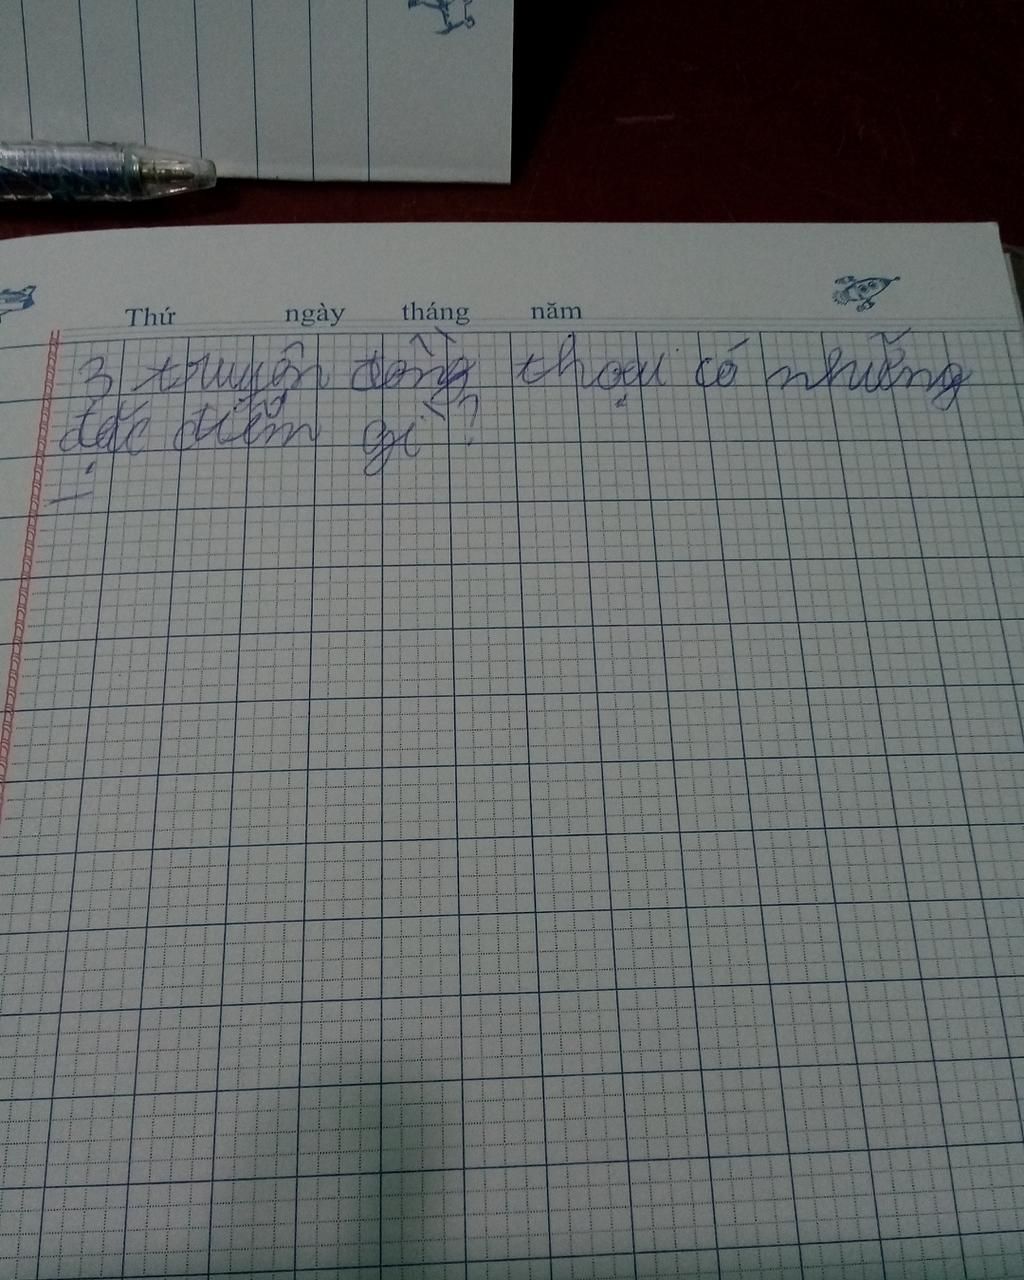 Thứ ngày tháng năm
3 truyện đồng thoại có những
đặc điểm gì?